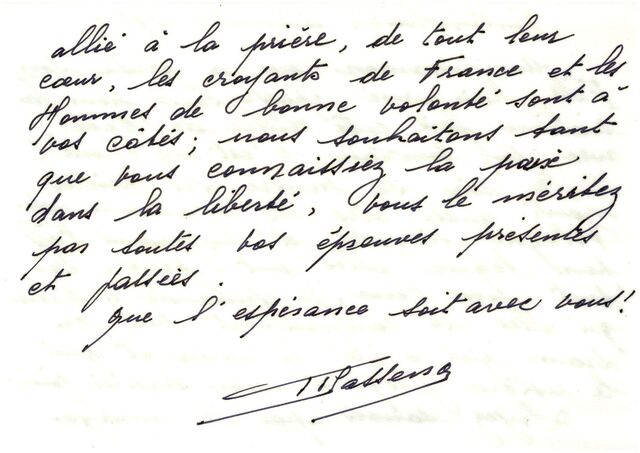 allié à la prière, de tout leur
cœur, les croyants de France et les
Hommes de bonne volonté sont à
vos côtés ; nous souhaitons tant
que vous connaissiez la paix
dans la liberté, vous le méritez
par toutes vos épreuves présentes
et passées.
que l'espérance soit avec vous !